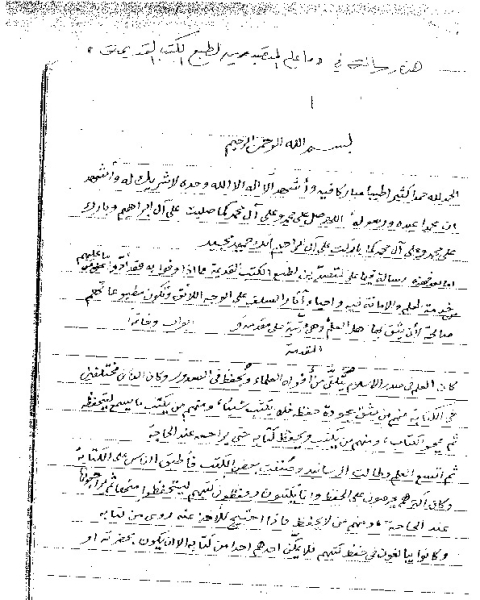 هذه رسالة في «ما على المتصدين لطبع الكتب القديمة»
بسم الله الرحمن الرحيم
الحمد لله حمدا كثيرا طيبا مباركا فيه وأشهد ألا إله إلا الله وحده لا شريك له وأشهد
أن محمدا عبده ورسوله اللهم صل على محمد وعلى آل محمد كما صليت على آل إبراهيم وبارك
على محمد وعلى آل محمد كما باركت على آل إبراهيم إنك حميد مجيد
أما بعد فهذه رسالة فيما على المتصدين لطبع الكتب القديمة مما إذا وفوا به فقد أدوا ما عليهم
من خدمة العلم والأمانة فيه وإحياء آثار السلف على الوجه اللائق وتكون مطبوعاتهم
صالحة لأن يثق بها أهل العلم وهي مرتبة على مقدمة و أبواب وخاتمة
المقدمة
كان العلم في صدر الإسلام يتلقى من أفواه العلماء ويحفظ في الصدور وكان الناس مختلفين
في الكتابة منهم من يثق بجودة حفظه فلا يكتب شيئا، ومنهم من يكتب ما يسمع ليتحفظه
ثم يمحو الكتاب، ومنهم من يكتب ويحفظ كتابه حتى يراجعه عند الحاجة
ثم اتسع العلم وطالت الأسانيد وصنفت بعض الكتب فأطبق الناس على الكتابة
وكان أكثرهم يحرصون على الحفظ وإنما يكتبون ويحفظون كتبهم ليتحفظوا منها ثم يراجعوها
عند الحاجة، ومنهم من لا يحفظ فإذا احتيج للأخذ عنه روى من كتابه
وكانوا يبالغون في حفظ كتبهم فلا يمكن أحدهم أحدا من كتابه إلا أن يكون بحضرته أو